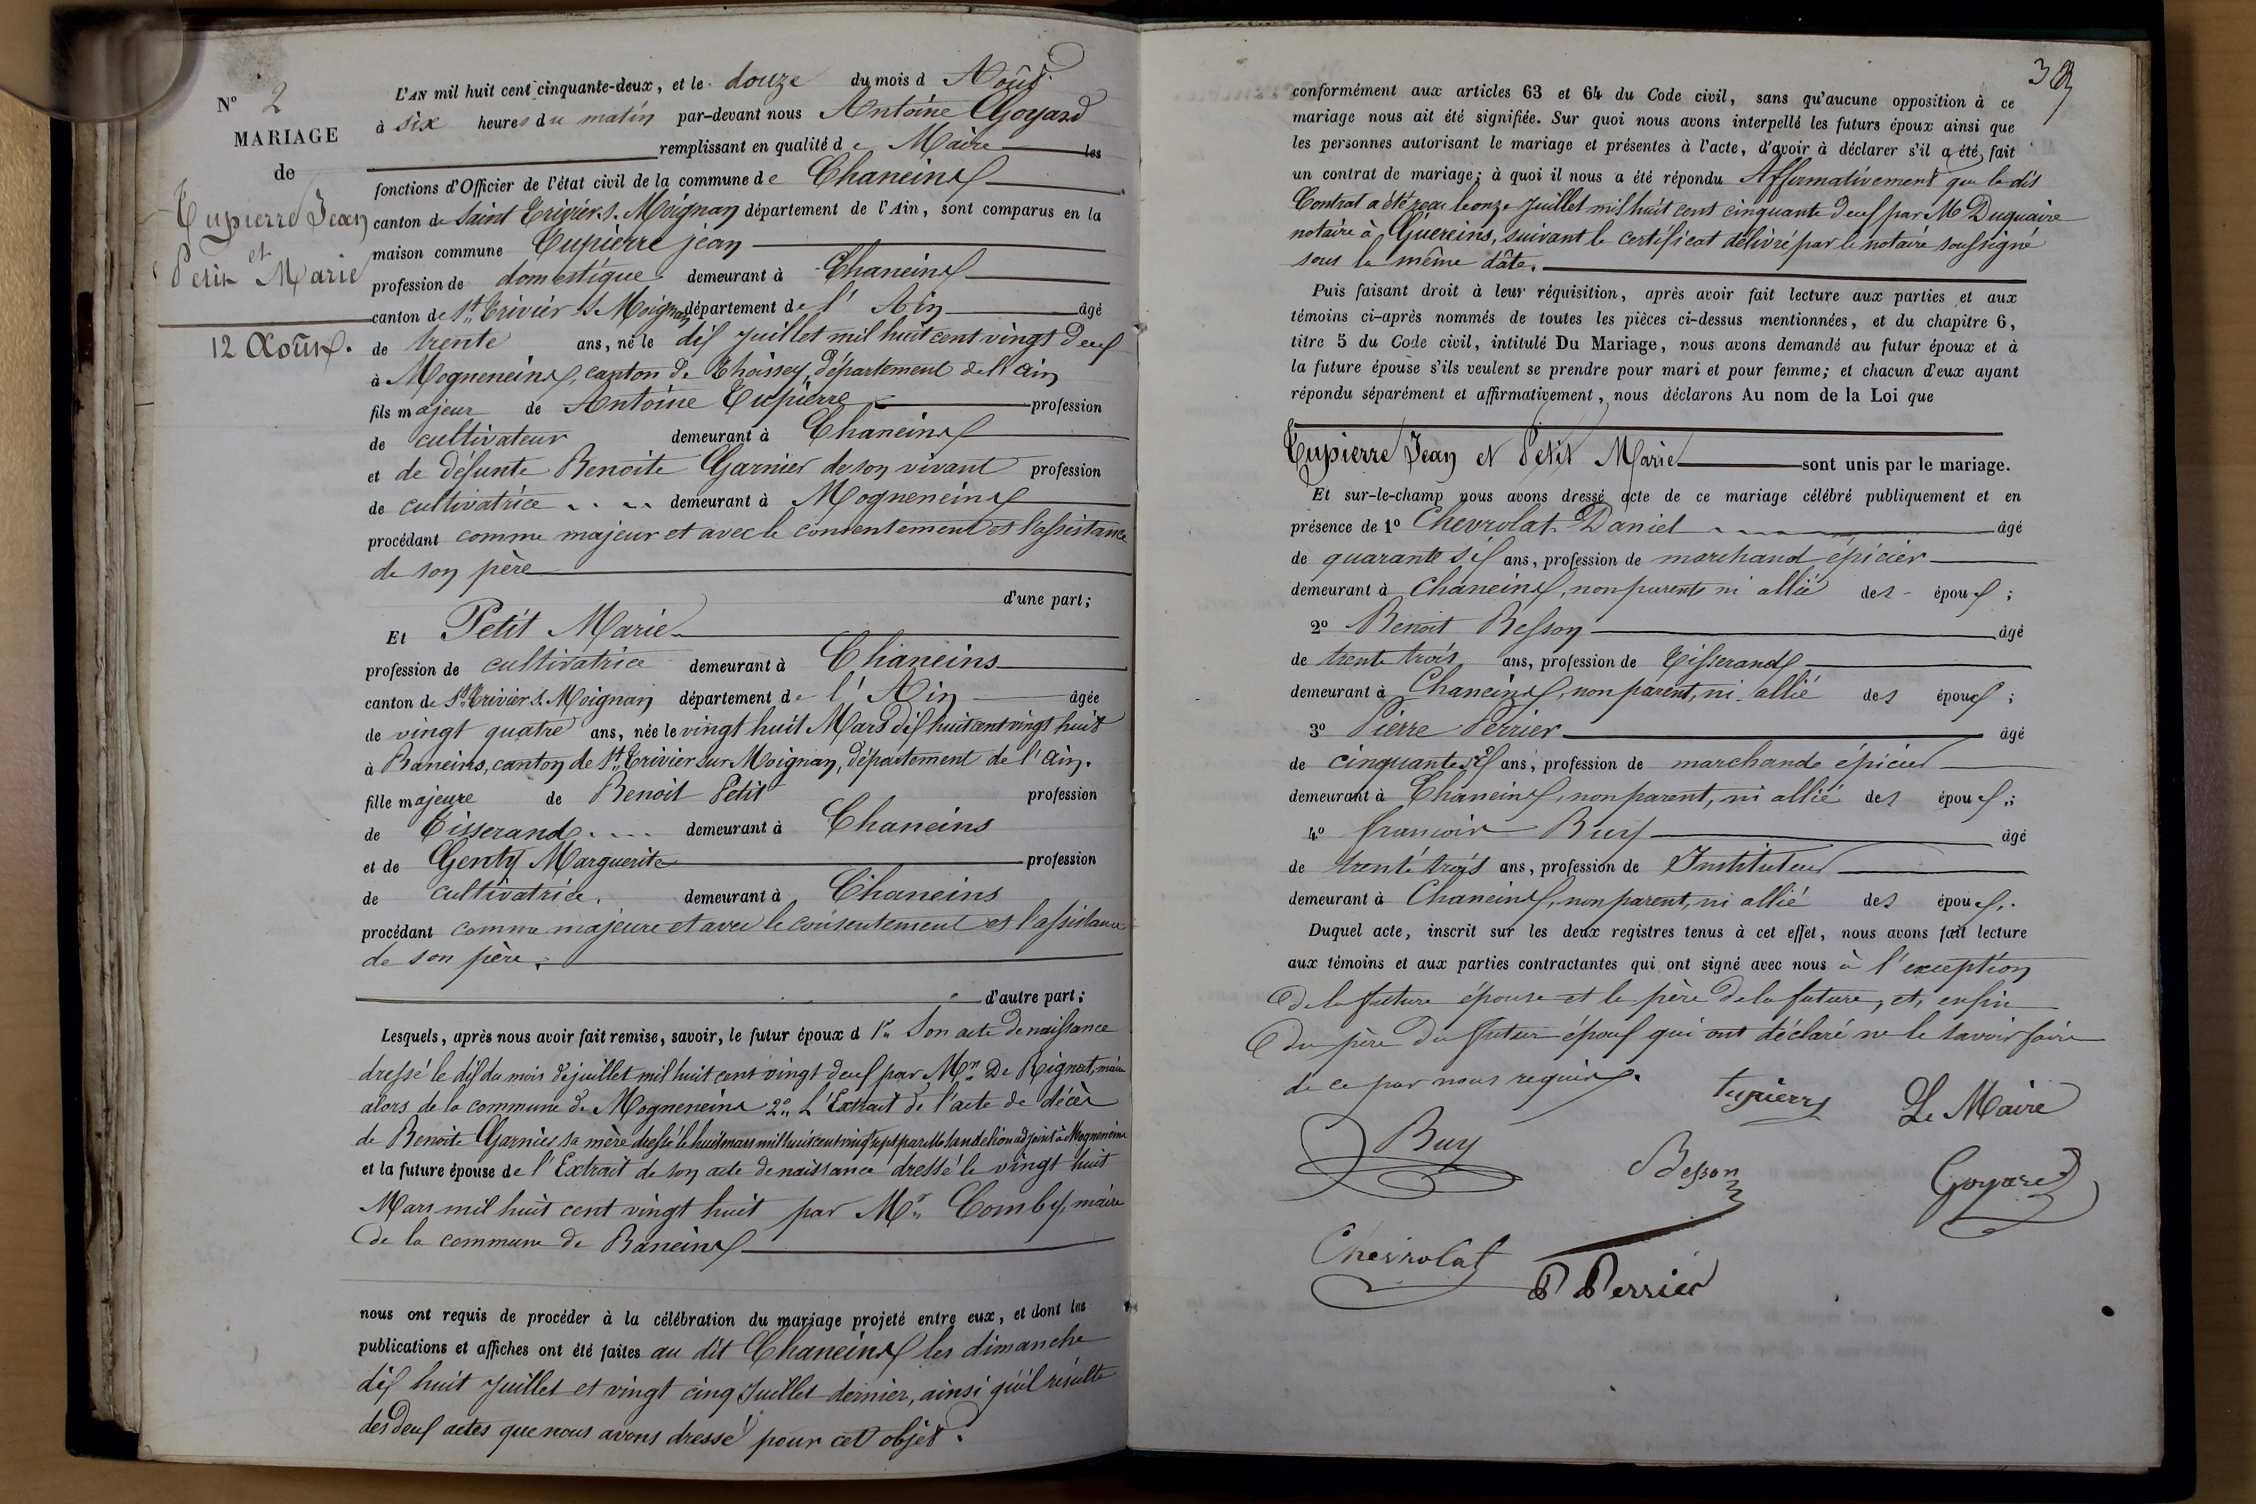 N° 2
MARIAGE
de
Tupierre Jean
et
Petit Marie
12 Aoûst.
L'AN mil huit cent cinquante-deux, et le douze du mois d Aoûst
à six heures du matin par-devant nous Antoine Goyard
remplissant en qualité de Maire les
fonctions d'Officier de l'état civil de la commune de Chaneins
canton de Saint Trivier s. Moignan département de l'Ain, sont comparus en la
maison commune Tupierre jean
profession de domestique demeurant à Chaneins
canton de St Trivier S. Moignan département de l' Ain âgé
de trente ans, né le dix Juillet mil huit cent vingt deux
à Mogneneins, canton de Thoissey, département de l'ain
fils majeur de Antoine Tupierre profession
de cultivateur demeurant à Chaneins
et de défunte Benoite Garnier de son vivant profession
de cultivatrice demeurant à Mogneneins
procédant comme majeur et avec le consentement et l'assistance
de son père
d'une part;
Et Petit Marie
profession de cultivatrice demeurant à Chaneins
canton de St Trivier s. Moignan département de l' Ain âgée
de vingt quatre ans, née le vingt huit Mars dix huit cent vingt huit
à Baneins, canton de St Trivier sur Moignan, département de l'ain.
fille majeure de Benoit Petit profession
de Tisserand demeurant à Chaneins
et de Genty Marguerite profession
de cultivatrice. demeurant à Chaneins
procédant comme majeure et avec le consentement et l'assistance
de son père.
d'autre part;
Lesquels, après nous avoir fait remise, savoir, le futur époux d 1° Son acte de naissance
dressé le dix du mois de juillet mil huit cent vingt deux par Mr De Rignat, maire
alors de la commune de Mogneneins 2° L'Extrait de l'acte de décès
de Benoite Garnier sa mère dressé le huit mars mil huit cent vingt sept par Mr adjoint à Mogneneins
et la future épouse de l'Extrait de son acte de naissance dressé le vingt huit
Mars mil huit cent vingt huit par Mr Comby, maire
de la commune de Baneins
nous ont requis de procéder à la célébration du mariage projeté entre eux, et dont les
publications et affiches ont été faites au dit Chaneins les dimanche
dix huit Juillet et vingt cinq Juillet dernier, ainsi qu'il résulte
des deux actes que nous avons dressé pour cet objet.
conformément aux articles 63 et 64 du Code civil, sans qu'aucune opposition à ce
mariage nous ait été signifiée. Sur quoi nous avons interpellé les futurs époux ainsi que
les personnes autorisant le mariage et présentes à l'acte, d'avoir à déclarer s'il a été fait
un contrat de mariage; à quoi il nous a été répondu Affirmativement que le dit
Contrat a été reçu le onze Juillet mil huit cent cinquante deux par Me Duquaire
notaire à Guéreins, suivant le certificat délivré par le notaire soussigné
sous la même dâte.
Puis faisant droit à leur réquisition, après avoir fait lecture aux parties et aux
témoins ci-après nommés de toutes les pièces ci-dessus mentionnées, et du chapitre 6,
titre 5 du Code civil, intitulé Du Mariage, nous avons demandé au futur époux et à
la future épouse s'ils veulent se prendre pour mari et pour femme; et chacun d'eux ayant
répondu séparément et affirmativement, nous déclarons Au nom de la Loi que
Tupierre Jean et Petit Marie sont unis par le mariage.
Et sur-le-champ nous avons dressé acte de ce mariage célébré publiquement et en
présence de 1° Chevrolat Daniel âgé
de quarante six ans, profession de marchand épicier
demeurant à Chaneins, non parents ni allié des époux;
2° Benoit Besson âgé
de trente trois ans, profession de Tisserand
demeurant à Chaneins, non parent, ni allié des époux;
3° Pierre Perrier âgé
de cinquante six ans, profession de marchands épicier
demeurant à Chaneins, non parent, ni allié des époux;
4° françois Buy âgé
de trente trois ans, profession de Instituteur
demeurant à Chaneins, non parent, ni allié des époux.
Duquel acte, inscrit sur les deux registres tenus à cet effet, nous avons fait lecture
aux témoins et aux parties contractantes qui ont signé avec nous à l'exception
de la future épouse et le père de la future, et, enfin
du père du futur époux qui ont déclaré ne le savoir faire
de ce par nous requis.
tupierre
Le Maire
Buy
Besson
Goyard
Chevrolat
P Perrier